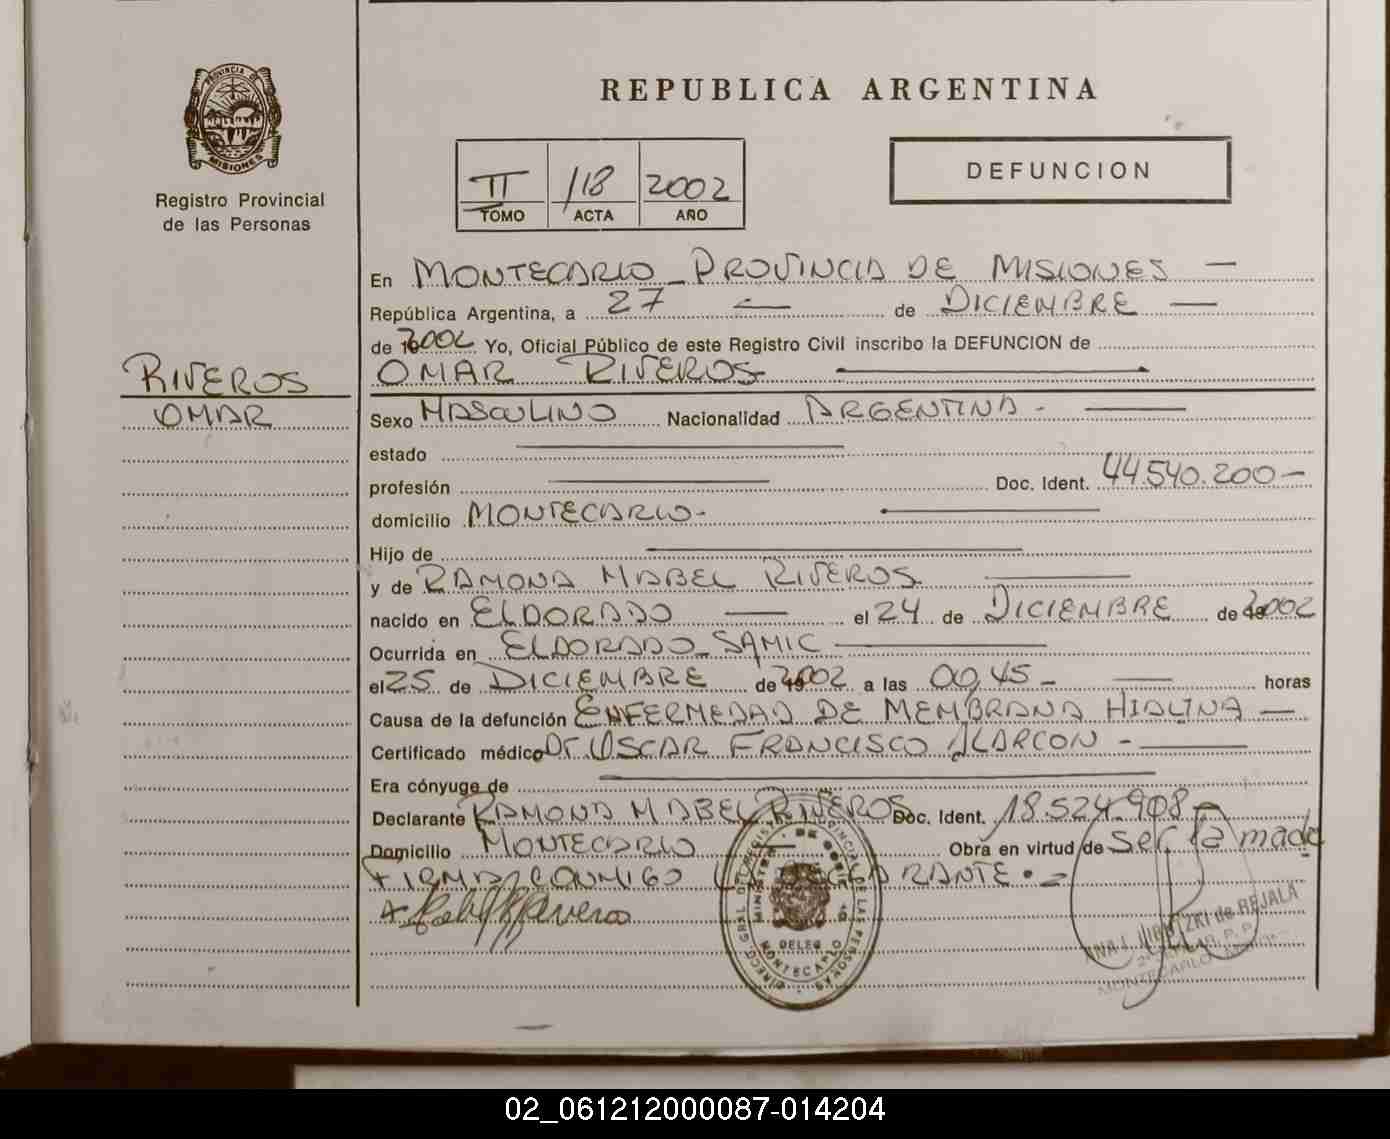 PROVINCIA DE
MISIONES
Registro Provincial
de las Personas
RIVEROS
OMAR
REPUBLICA ARGENTINA
II 118 2002
TOMO ACTA AÑO
DEFUNCION
En MONTECARLO_PROVINCIA DE MISIONES —
República Argentina, a 27 — de DICIEMBRE —
de 2002 Yo, Oficial Público de este Registro Civil inscribo la DEFUNCION de
OMAR RIVEROS
Sexo MASCULINO Nacionalidad ARGENTINA -
estado
profesión Doc. Ident. 44.540.200-
domicilio MONTECARLO-
Hijo de
y de RAMONA MABEL RIVEROS
nacido en ELDORADO — el 24 de DICIEMBRE de 2002
Ocurrida en ELDORADO_SAMIC
el 25 de DICIEMBRE de 2002 a las 00,45- — horas
Causa de la defunción ENFERMEDAD DE MEMBRANA HIALINA —
Certificado médico Dr. OSCAR FRANCISCO ALARCON -
Era cónyuge de
Declarante RAMONA MABEL RIVEROS Doc. Ident. 18.524.908-
Domicilio MONTECARLO — Obra en virtud de ser la madre
FIRMA CONMIGO LA DECLARANTE.-
MONTECARLO
DELEG
02_061212000087-014204